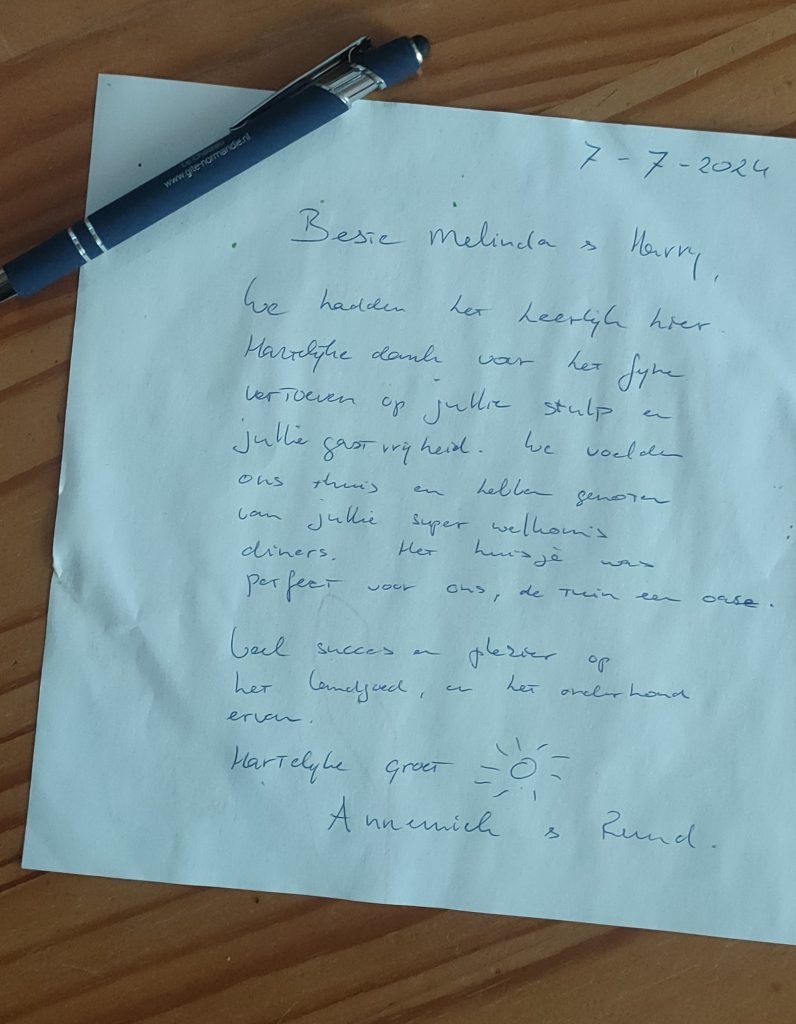 www.gite-normandie.nl
7-7-2024
Beste Melinda & Harry,
We hadden het heerlijk hier.
Hartelijke dank voor het fijne
vertoeven op jullie stulp en
jullie gastvrijheid. We voelden
ons thuis en hebben genoten
van jullie super welkoms
diners. Het huisje was
perfect voor ons, de tuin een oase.
Veel succes en plezier op
het landgoed, en het onderhoud
ervan.
Hartelijke groet
Annemiek & Ruud.